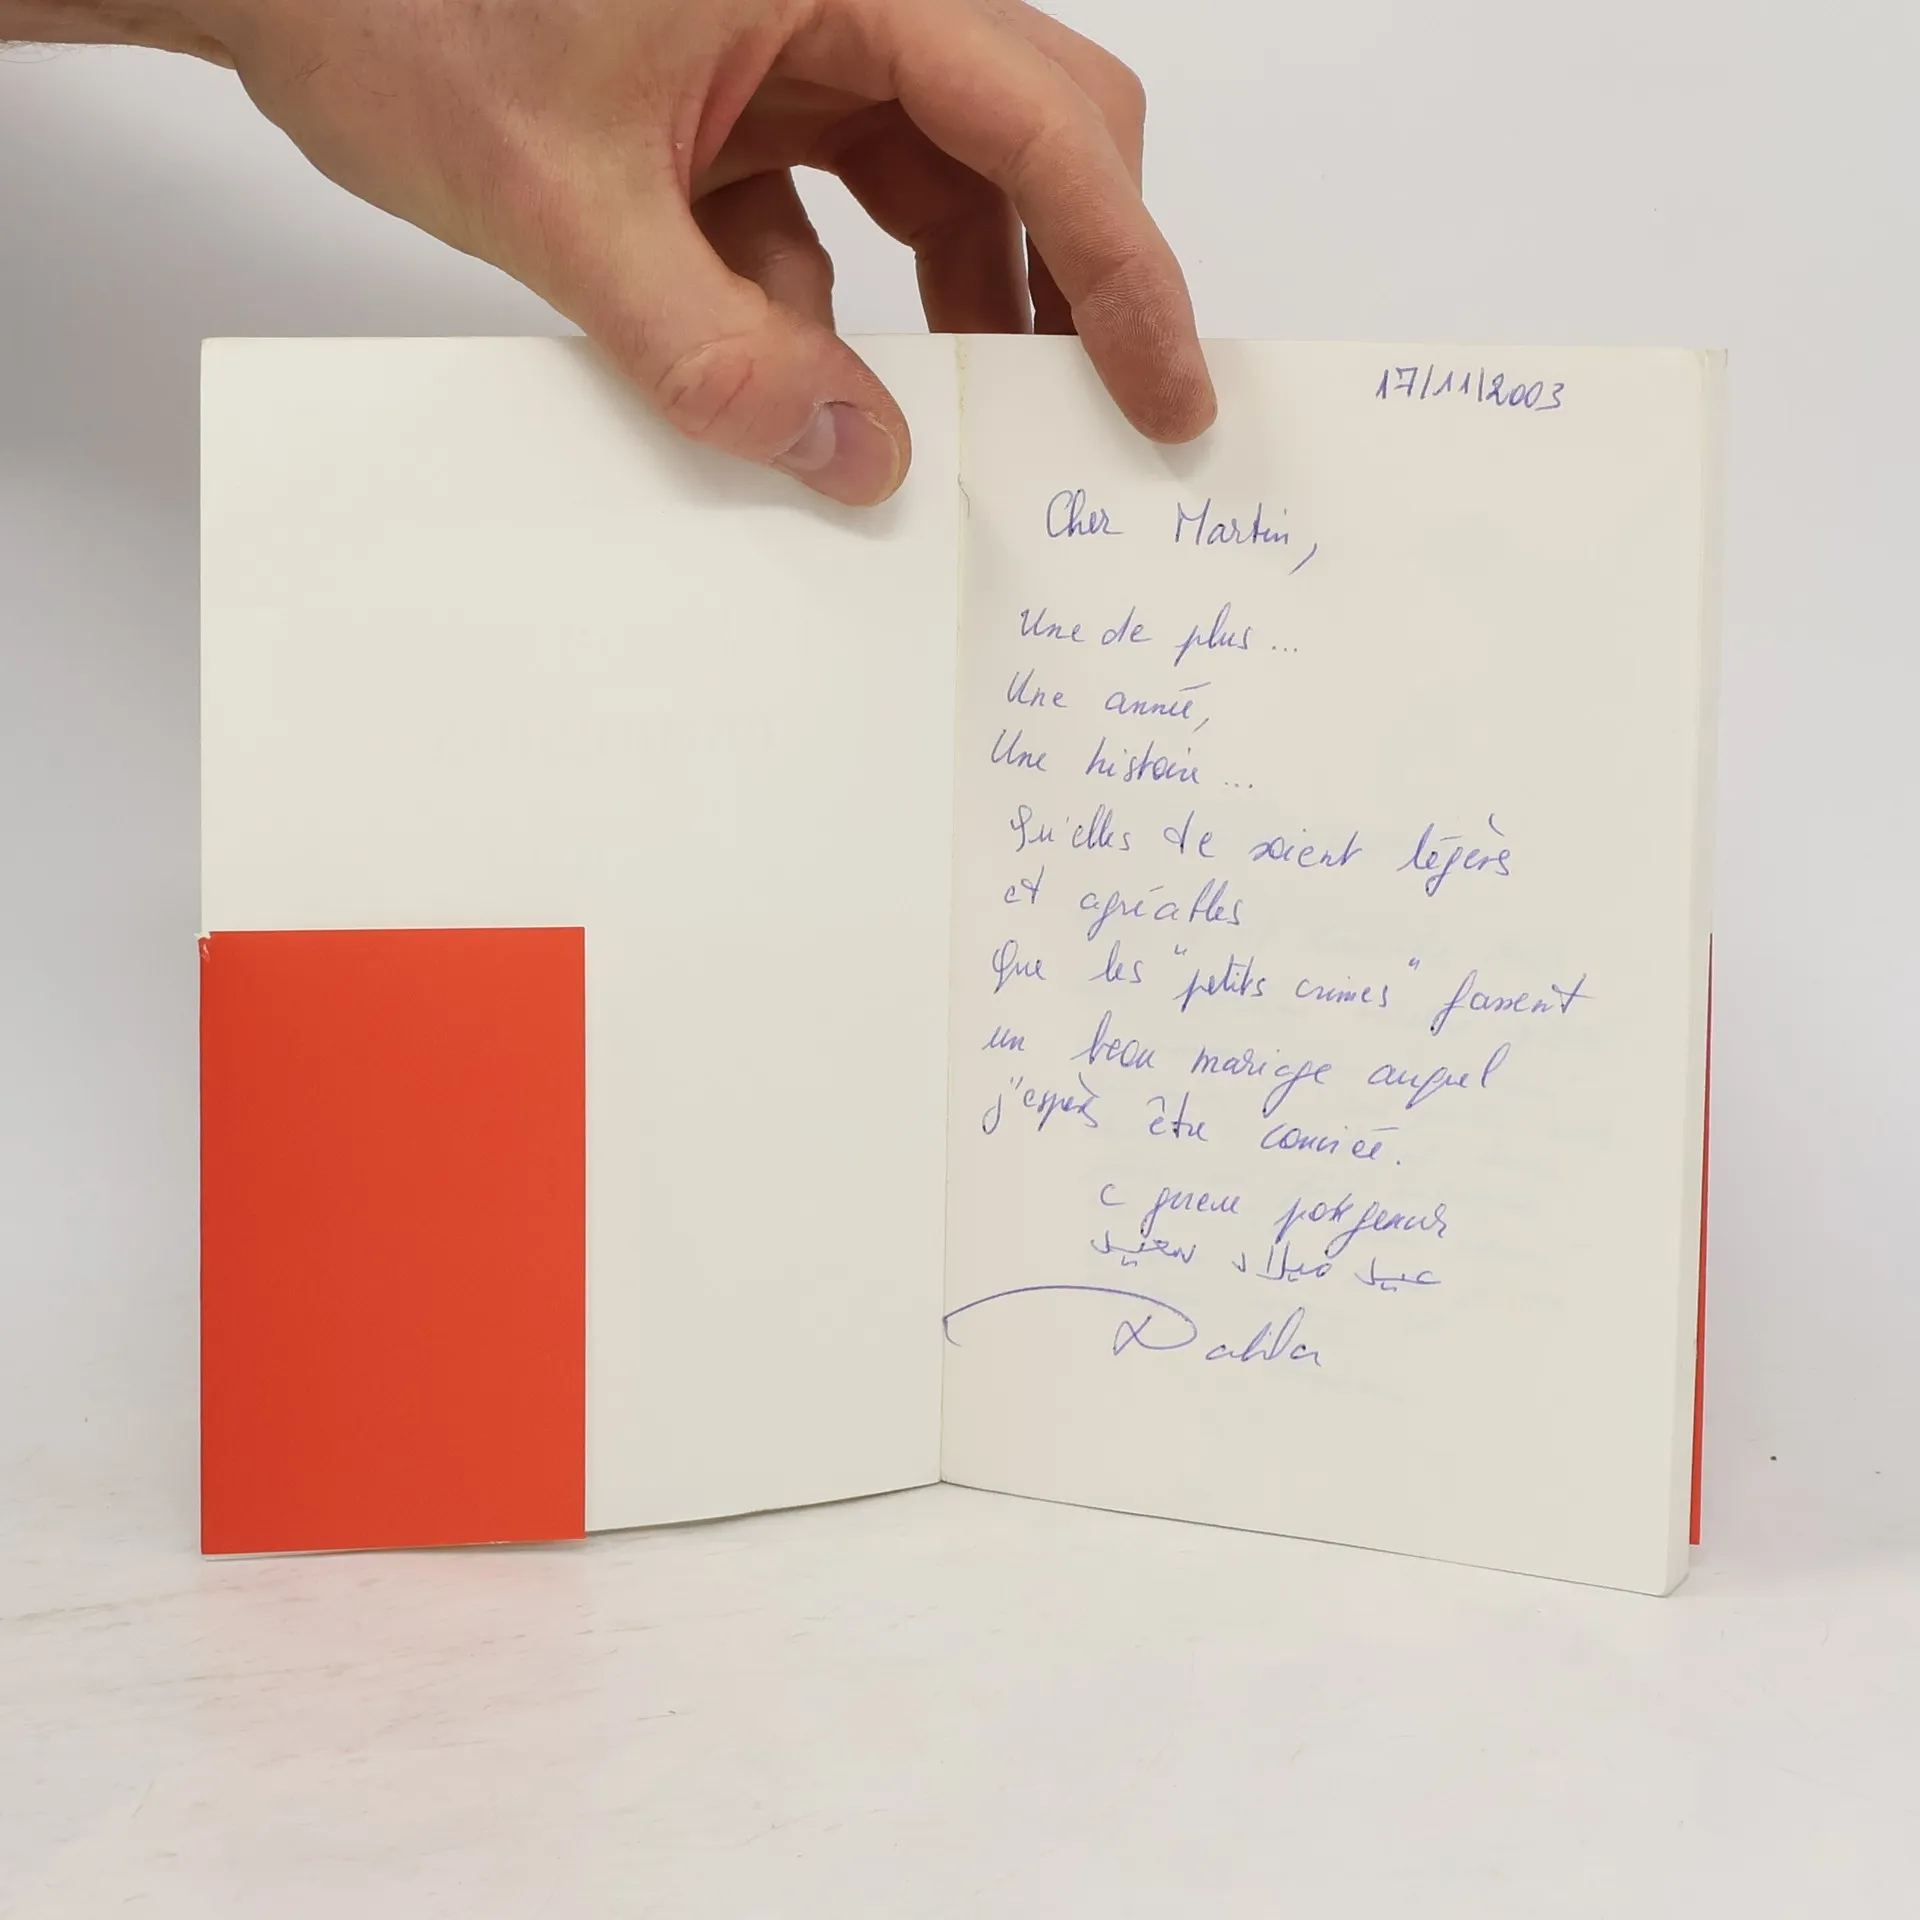 17/11/2003
Cher Martin,
Une de plus...
Une année,
Une histoire...
Qu'elles te soient légères
et agréables
Que les "petits crimes" fassent
un beau mariage auquel
j'espère être conviée.
عيد ميلاد سعيد
Dalila